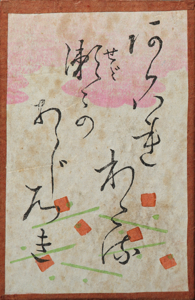 あらはれ
わたる
瀬ゞの
せゞ
あじろき